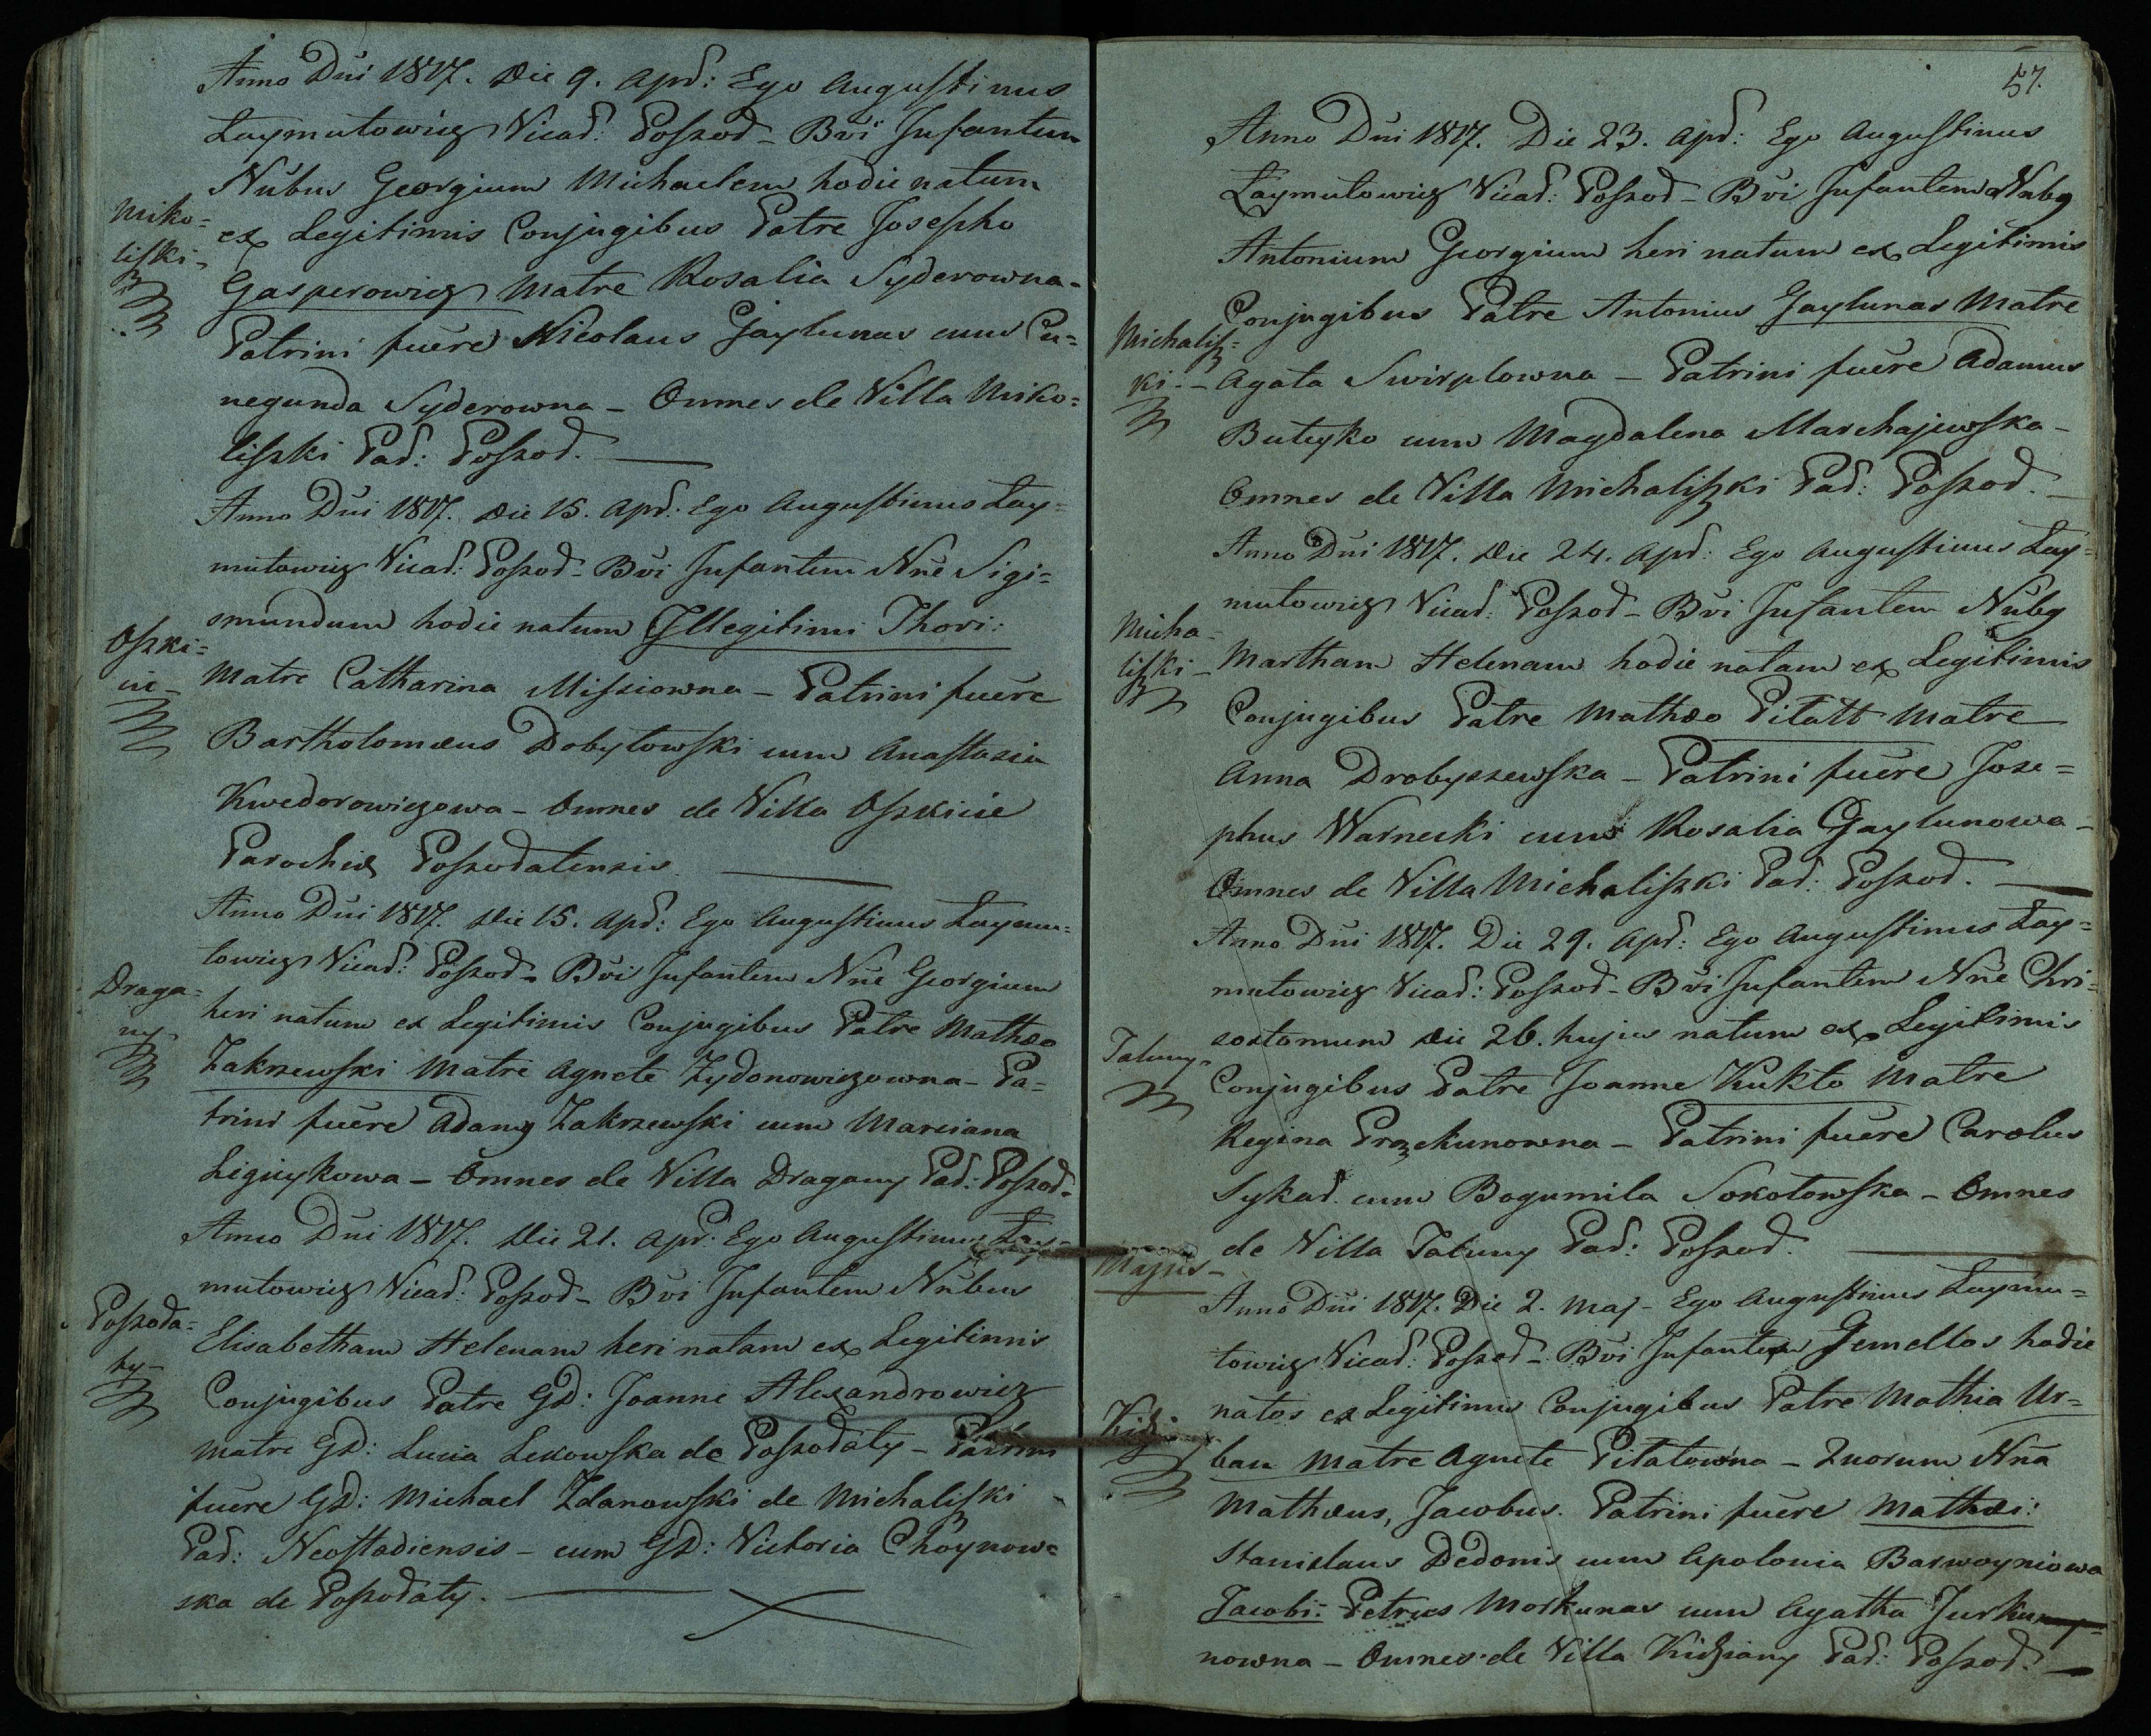 Anno Dni 1817. Die 9. Apr: Ego Augustinus
Laymutowicz Vicar: Poszod_ Bvi Infantem
Nnibus Georgium Michaelem hodie natum
Miko=
liszki_
ex Legitimis Conjugibus Patre Josepho
Gasperowicz Matre Rosalia Syderowna_
Patrini fuere Nicolaus Gaylunas cum Cu=
negunda Syderowna _ Omnes de Villa Miko=
liszki Par: Poszod.
Anno Dni 1817. Die 15. Apr: Ego Augustinus Lay=
mutowicz Vicar: Poszod_ Bvi Infantem Nne Sigi=
smundum hodie natum Illegitimi Thori:
Oszki=
nie_
Matre Catharina Missiowna _ Patrini fuere
Bartholomæus Dobytowski cum Anastasia
Kwedorowiczowa _ Omnes de Villa Oszkinie
Parochiæ Poszodatensis.
Anno Dni 1817. Die 15. Apr: Ego Augustinus Laymu=
towicz Vicar: Poszod_ Bvi Infantem Nne Georgium
Draga=
ny_
heri natum ex Legitimis Conjugibus Patre Mathæo
Zakrzewski Matre Agnete Zydonowiczowna _ Pa=
trini fuere Adamg Zakrzewski cum Marciana
Ligieykowa _ Omnes de Villa Dragany Par: Poszod_
Anno Dni 1817. Die 21. Apr: Ego Augustinus Lay=
mutowicz Vicar: Poszod_ Bvi Infantem Nnibus
Poszoda=
ty_
Elisabetham Helenam heri natam ex Legitimis
Conjugibus Patre GD: Joanne Alexandrowicz
Matre GD: Lucia Lexowska de Poszodaty _ Patrini
fuere GD: Michael Zdanowski de Michaliszki _
Par: Neostadiensis _ cum GD: Victoria Choynow=
ska de Poszodaty.
57.
Anno Dni 1817. Die 23. Apr: Ego Augustinus
Laymutowicz Vicar: Poszod_ Bvi Infantem Nnibg
Antonium Georgium heri natum ex Legitimis
Conjugibus Patre Antonius Gaylunas Matre
Michalisz=
ki_
Agata Swirplowna _ Patrini fuere Adamus
Buteyko cum Magdalena Marchajewska _
Omnes de Villa Michaliszki Par: Poszod.
Anno Dni 1817. Die 24. Apr: Ego Augustinus Lay=
mutowicz Vicar: Poszod_ Bvi Infantem Nnibg
Micha=
liszki_
Martham Helenam hodie natam ex Legitimis
Conjugibus Patre Mathæo Pitatt Matre
Anna Drobyszewska _ Patrini fuere Jose=
phus Warnecki cum Rosalia Gaylunowa _
Omnes de Villa Michaliszki Par: Poszod.
Anno Dni 1817. Die 29. Apr: Ego Augustinus Lay=
mutowicz Vicar: Poszod_ Bvi Infantem Nne Chri=
sostomum die 26. hujus natum ex Legitimis
Taluny_
Conjugibus Patre Joanne Kukto Matre
Regina Przekunowna _ Patrini fuere Carolus
Sykar cum Bogumila Sokotowska _ Omnes
de Villa Taluny Par: Poszod.
Majus_
Anno Dni 1817. Die 2. Maj_ Ego Augustinus Laymu=
towicz Vicar: Poszod_ Bvi Infantem Gemellos hodie
natos ex Legitimis Conjugibus Patre Mathia Ur=
ban Matre Agnete Pitatowna _ Quorum Nna
Mathæus, Jacobus. Patrini fuere Mathæi:
Stanislaus Dedonis cum Apolonia Barwoyniowa
Jacobi: Petrus Morkunas cum Agatha Jurku=
nowna _ Omnes de Villa Kidziany Par: Poszod.